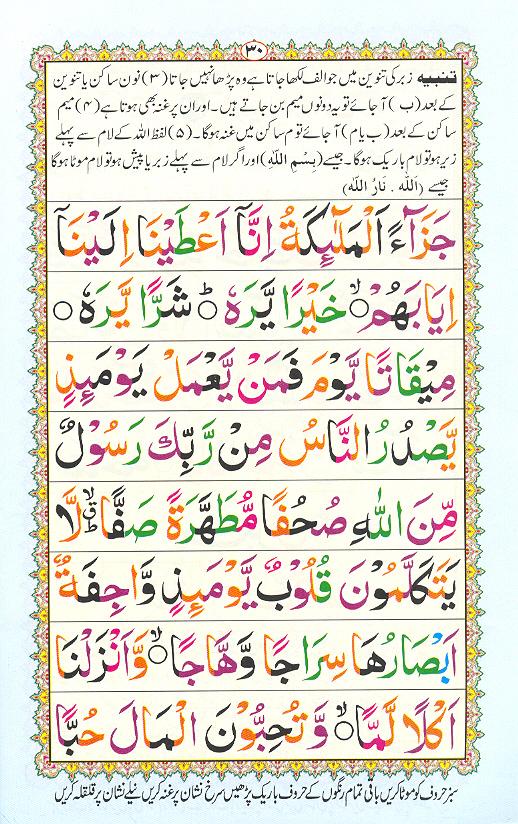 ۳۰
تنبیہ زبر کی تنوین میں جو الف لکھا جاتا ہے وہ پڑھا نہیں جاتا (۳) نون ساکن یا تنوین
کے بعد (ب) آ جائے تو یہ دونوں میم بن جاتے ہیں۔ اور ان پر غنہ بھی ہوتا ہے (۴) میم
ساکن کے بعد (ب یا م) آ جائے تو م ساکن میں غنہ ہوگا۔ (۵) لفظ اللہ کے لام سے پہلے
زیر ہو تو لام باریک ہوگا۔ جیسے (بِسْمِ اللّٰهِ) اور اگر لام سے پہلے زبر یا پیش ہو تو لام موٹا ہوگا
جیسے (اَللّٰهُ . نَارُ اللّٰهِ)
جَزَآءً اَلْمَلٰٓئِكَةُ اِنَّآ اَعْطَيْنَا اِلَيْنَآ
اِيَابَهُمْ ۙ خَيْرًا يَّرَهٗ ؕ شَرًّا يَّرَهٗ ۝
مِيْقَاتًا يَّوْمَ فَمَنْ يَّعْمَلْ يَوْمَئِذٍ
يَّصْدُرُ النَّاسُ مِنْ رَّبِّكَ رَسُوْلٌ
مِّنَ اللّٰهِ صُحُفًا مُّطَهَّرَةً صَفًّا ۙؕق لَّا
يَتَكَلَّمُوْنَ قُلُوْبٌ يَّوْمَئِذٍ وَّاجِفَةٌ
اَبْصَارُهَا سِرَاجًا وَّهَّاجًا ۙ وَّاَنْزَلْنَا
اَكْلًا لَّمًّا ۙ وَّتُحِبُّوْنَ الْمَالَ حُبًّا
سبز حروف کو موٹا کریں باقی تمام رنگوں کے حروف باریک پڑھیں سرخ نشان پر غنہ کریں نیلے نشان پر قلقلہ کریں